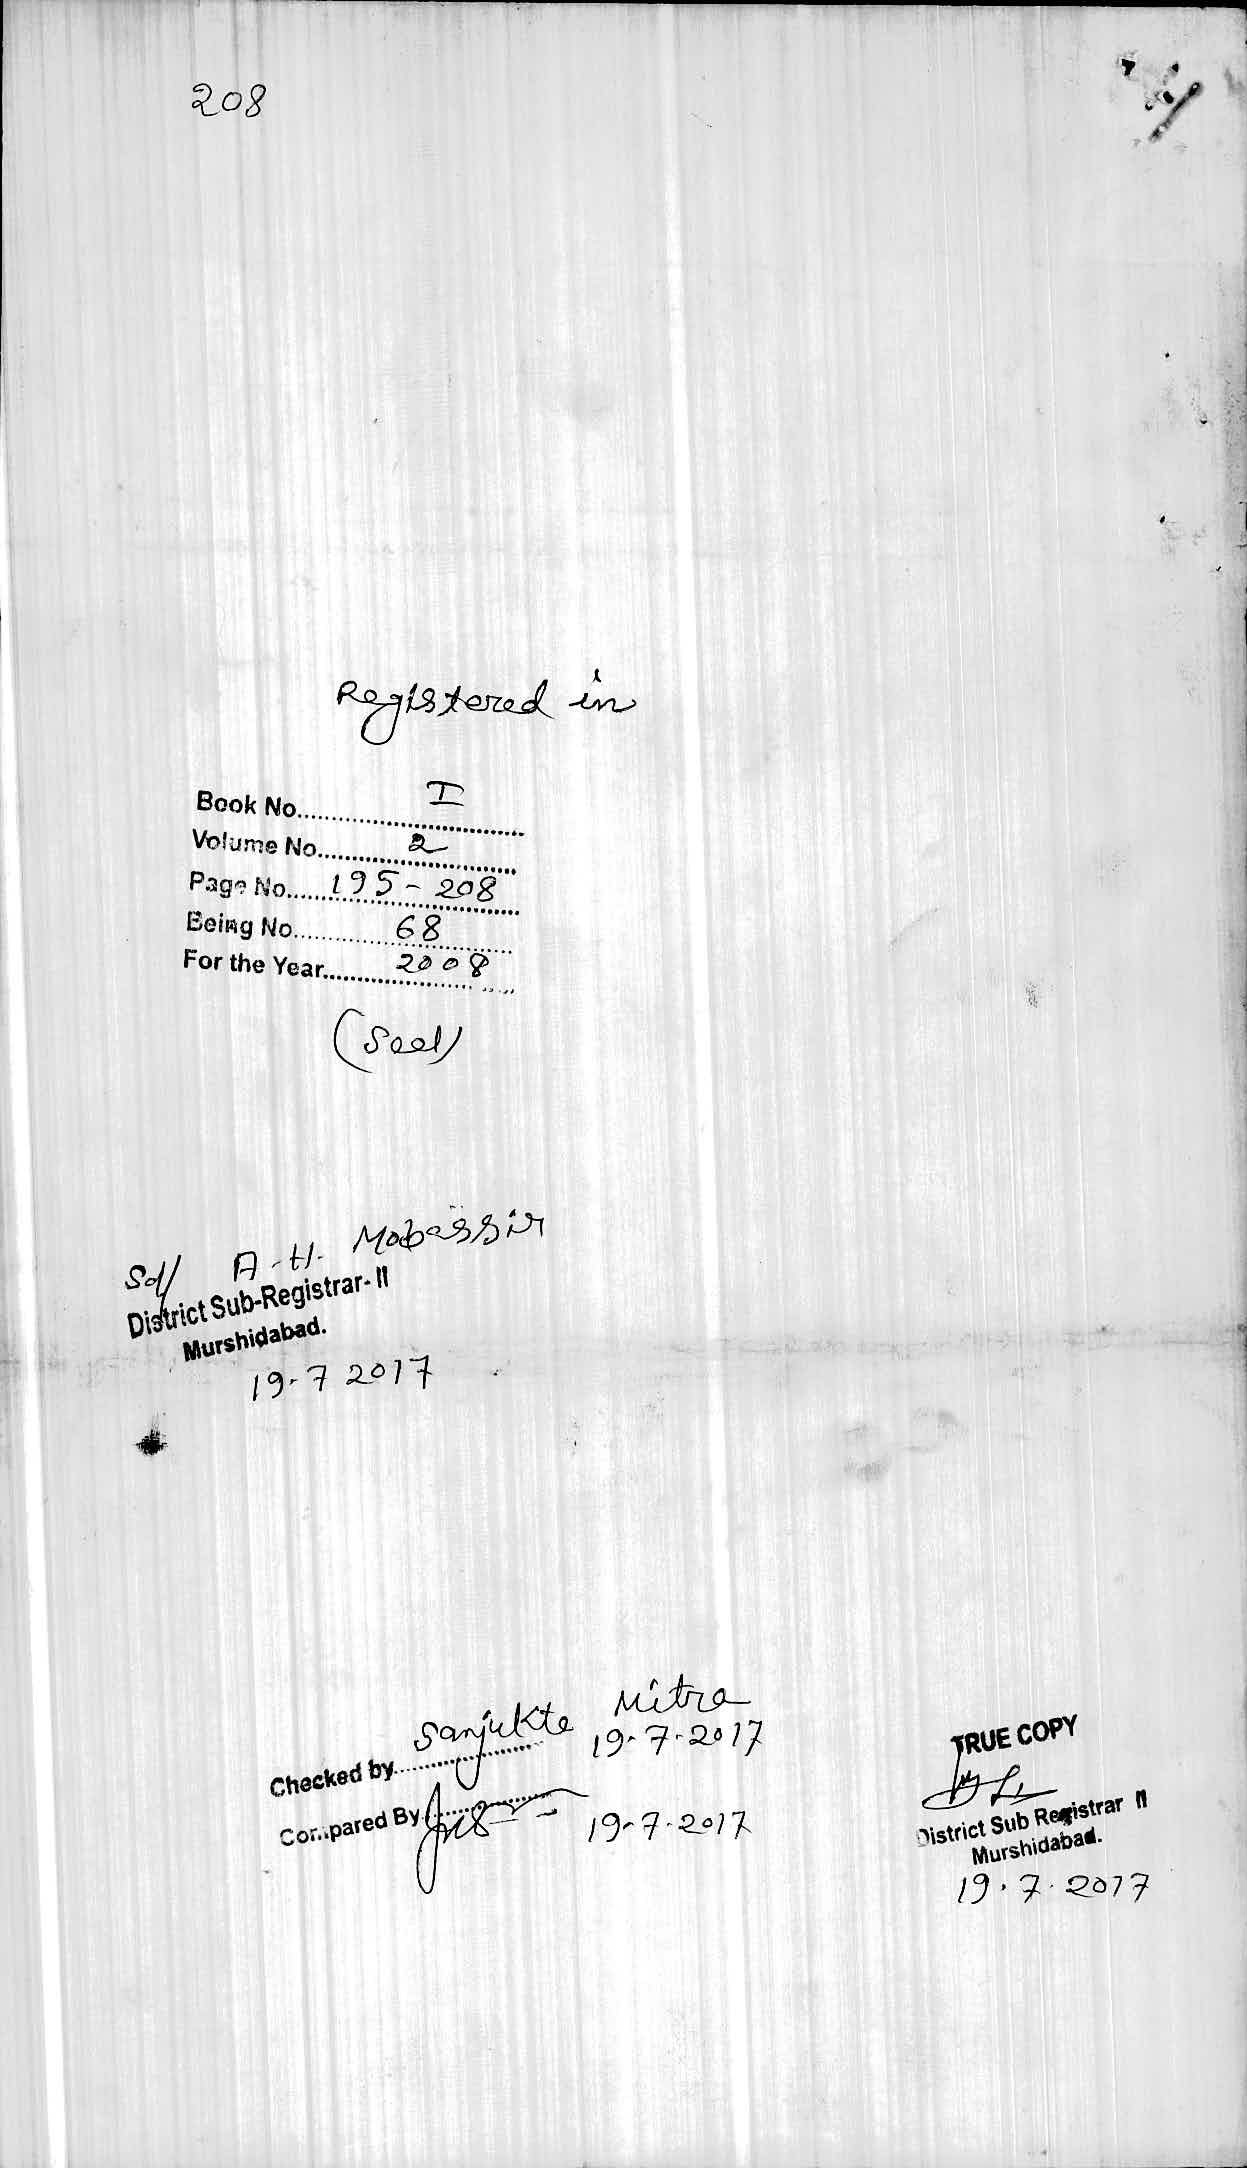 208
Registered in
Book No.......... I
Volume No.......... 2
Page No.......... 195 - 208
Being No.......... 68
For the Year.......... 2008
(Seal)
Sd/ A.H. Mobassir
District Sub-Registrar- II
Murshidabad.
19-7 2017
Checked by.......... Sanjukta Mitra
19-7-2017
Compared By..........
19-7-2017
TRUE COPY
District Sub Registrar II
Murshidabad.
19.7.2017